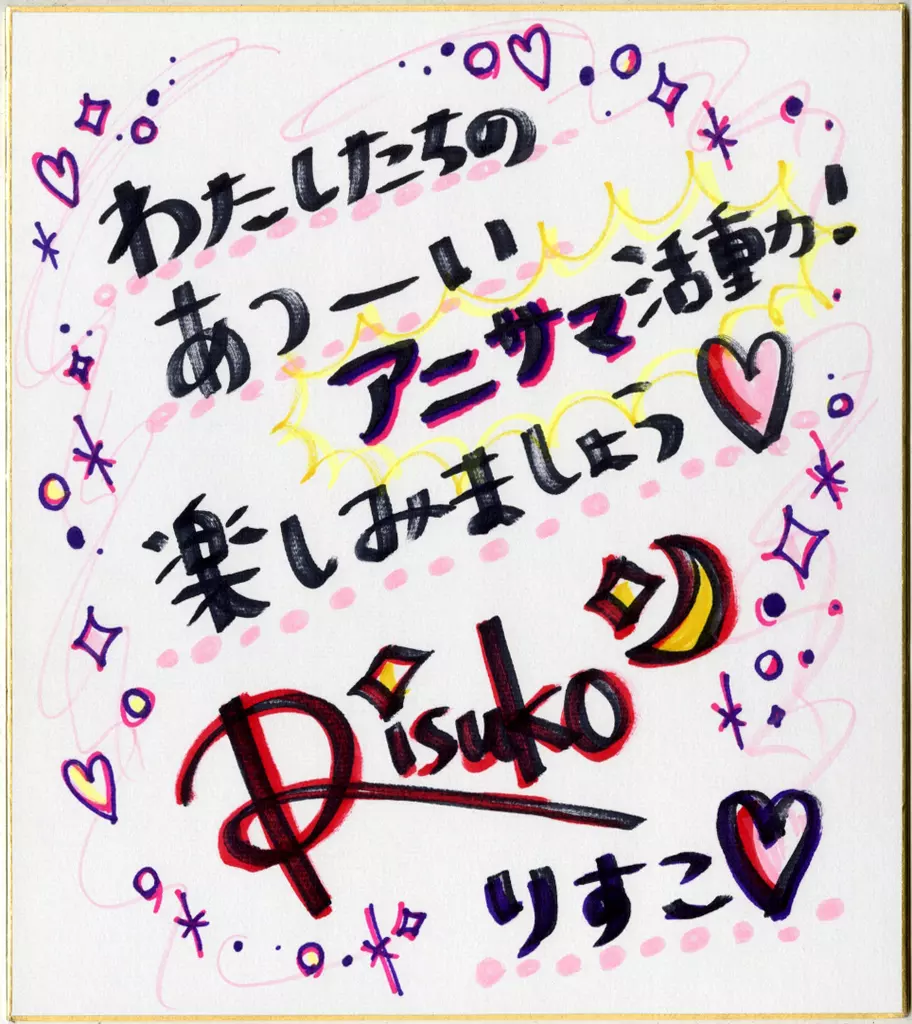 わたしたちの
あつーい
アニサマ活動カ!
楽しみましょう
Risuko
りすこ